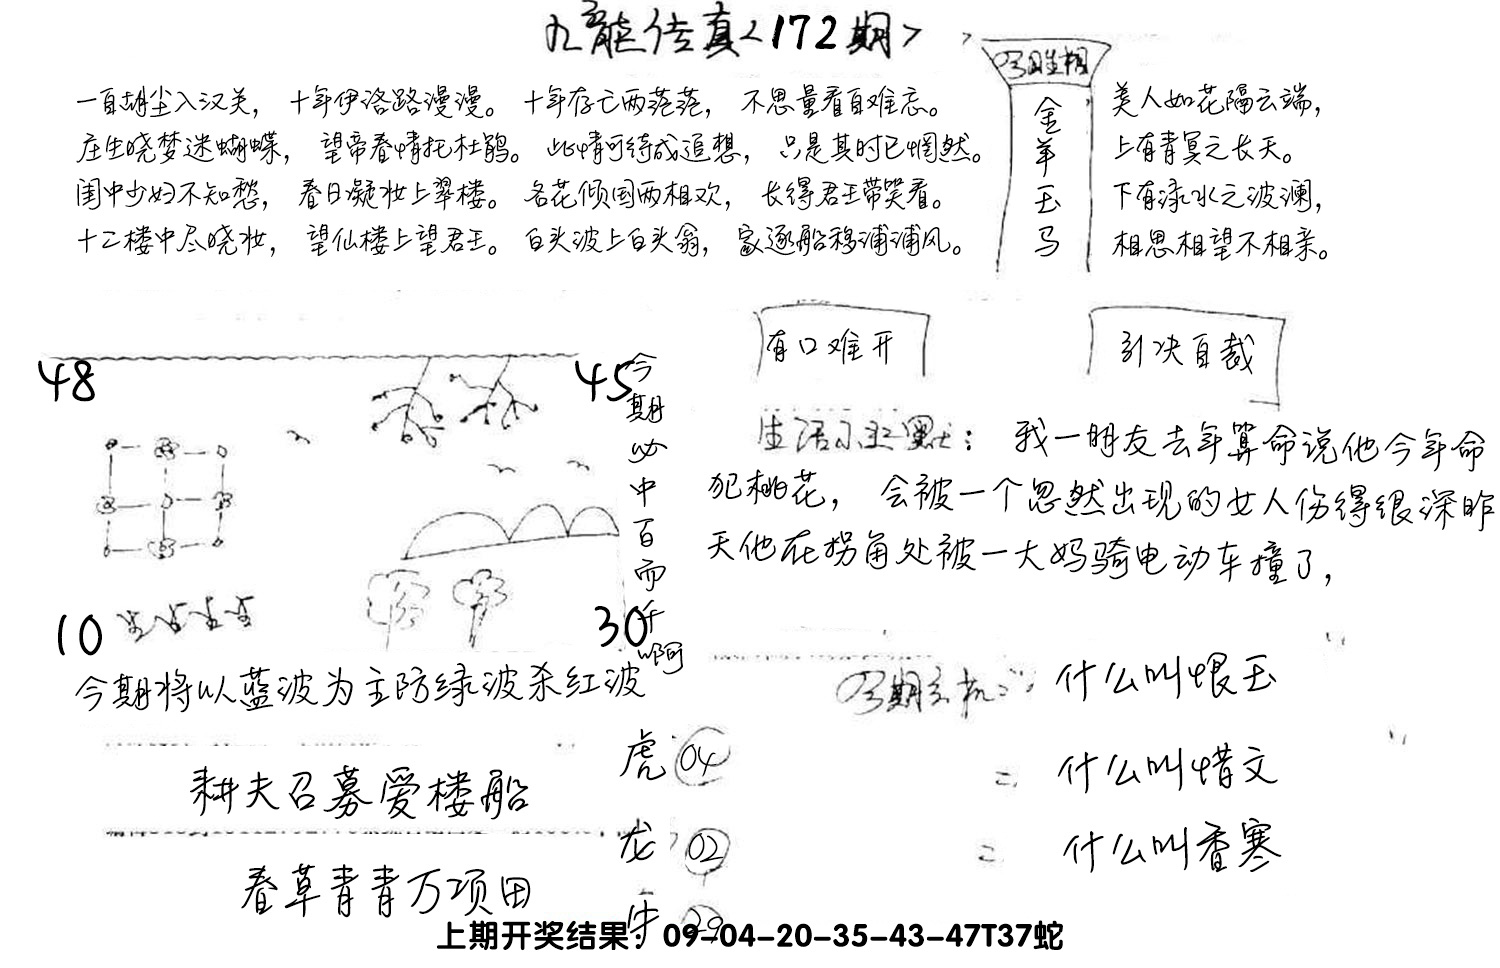 九龍传真<172期>
一自胡尘入汉关，十年伊洛路漫漫。十年存亡两茫茫，不思量看自难忘。
庄生晓梦迷蝴蝶，望帝春情托杜鹃。此情可待成追想，只是其时已惘然。
闺中少妇不知愁，春日凝妆上翠楼。名花倾国两相欢，长得君王带笑看。
十二楼中尽晓妆，望仙楼上望君王。白头波上白头翁，家逐船移浦浦风。
今期生相
金羊玉马
美人如花隔云端，
上有青冥之长天。
下有渌水之波澜，
相思相望不相亲。
48
45
10
30
今期必中百而千啊
今期将以蓝波为主防绿波杀红波
有口难开
引决自裁
生活小幽默：我一朋友去年算命说他今年命
犯桃花，会被一个忽然出现的女人伤得很深昨
天他在拐角处被一大妈骑电动车撞了，
耕夫召募爱楼船
春草青青万项田
虎 04
龙 02
牛 29
今期玄机：什么叫恨玉
= 什么叫惜文
= 什么叫香寒
上期开奖结果：09-04-20-35-43-47T37蛇